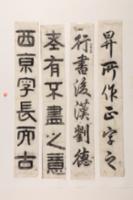 昇所作正字之
行書後漢劉德
有不盡之
西京字長而古